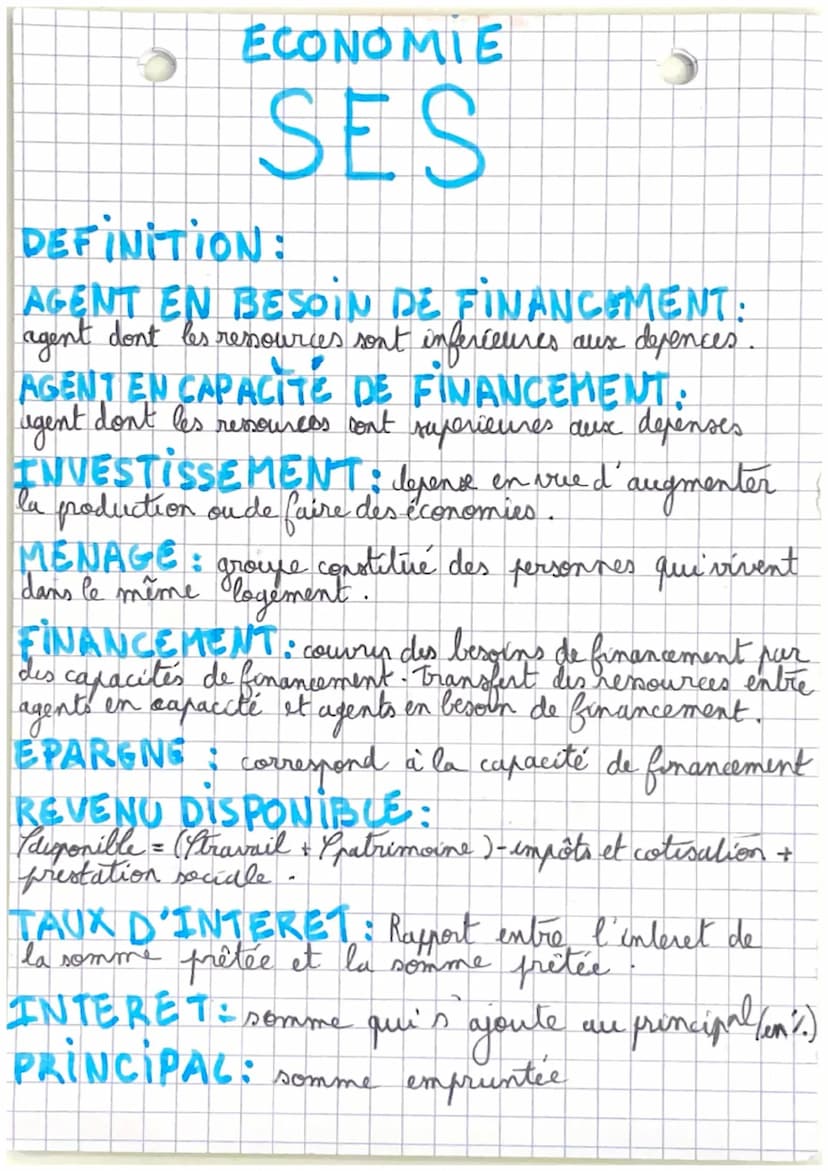 ECONOMIE
SES
DEFINITION:
AGENT EN BESOIN DE FINANCEMENT:
agent dont les ressources sont inferieures aux depences.
AGENT EN CAPACITÉ DE FINANCEMENT:
agent dont les ressources sont superieures aux depenses
INVESTISSEMENT: depense en vue d'augmenter
la production ou de faire des économies.
MENAGE: groupe constitué des personnes qui vivent
dans le même logement.
FINANCEMENT: couvrir des besoins de financement par
des capacités de financement. Transfert des ressources entre
agents en capacité et agents en besoin de financement.
EPARGNE: correspond à la capacité de financement
REVENU DISPONIBLE:
Rdisponible = (Rtravail + Rpatrimoine) - impôts et cotisation +
prestation sociale.
TAUX D'INTERET: Rapport entre l'interet de
la somme prêtée et la somme prêtée.
INTERET: somme qui s'ajoute au principal (en %)
PRINCIPAL: somme empruntée